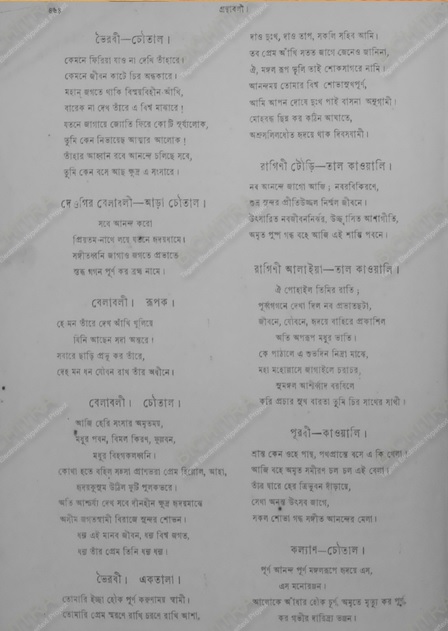 গ্রন্থাবলী।
ভৈরবী—চৌতাল।
কেমনে ফিরিয়া যাও না দেখি তাঁহারে!
কেমনে জীবন কাটে চির অন্ধকারে।
মহান্ জগতে থাকি বিস্ময়বিহীন আঁখি,
বারেক না দেখ তাঁরে এ বিশ্ব মাঝারে!
যতনে জাগায়ে জ্যোতি ফিরে কোটি সূর্য্যলোক,
তুমি কেন নিভায়েছ আত্মার আলোক!
তাঁহার আহ্বান রবে আনন্দে চলিছে সবে,
তুমি কেন বসে আছ ক্ষুদ্র এ সংসারে।
দেওগির বেলাবলী—আড়া চৌতাল।
সবে আনন্দ করো
প্রিয়তম নাথে লয়ে যতনে হৃদয়ধামে।
সঙ্গীতধ্বনি জাগাও জগতে প্রভাতে
স্তব্ধ গগন পূর্ণ কর ব্রহ্ম নামে।
বেলাবলী। রূপক।
হে মন তাঁরে দেখ আঁখি খুলিয়ে
যিনি আছেন সদা অন্তরে!
সবারে ছাড়ি প্রভু কর তাঁরে,
দেহ মন ধন যৌবন রাখ তাঁর অধীনে।
বেলাবলী। চৌতাল।
আজি হেরি সংসার অমৃতময়,
মধুর পবন, বিমল কিরণ, ফুল্লবন,
মধুর বিহগকলধ্বনি।
কোথা হতে বহিল সহসা প্রাণভরা প্রেম হিল্লোল, আহা,
হৃদয়কুসুম উঠিল ফুটি পুলকভরে।
অতি আশ্চর্য্য দেখ সবে দীনহীন ক্ষুদ্র হৃদয়মাঝে
অসীম জগতস্বামী বিরাজে সুন্দর শোভন।
ধন্য এই মানব জীবন, ধন্য বিশ্ব জগত,
ধন্য তাঁর প্রেম তিনি ধন্য ধন্য।
ভৈরবী। একতালা।
তোমারি ইচ্ছা হৌক পূর্ণ করুণাময় স্বামী।
তোমারি প্রেম স্মরণে রাখি চরণে রাখি আশা,
দাও দুঃখ, দাও তাপ, সকলি সহিব আমি।
তব প্রেম আঁখি সতত জাগে জেনেও জানিনা,
ঐ মঙ্গল রূপ ভুলি তাই শোকসাগরে নামি।
আনন্দময় তোমার বিশ্ব শোভাসুখপূর্ণ,
আমি আপন দোষে দুঃখ পাই বাসনা অনুগামী।
মোহবন্ধ ছিন্ন কর কঠিন আঘাতে,
অশ্রুসলিলধৌত হৃদয়ে থাক দিবসযামী।
রাগিণী টৌড়ি—তাল কাওয়ালি।
নব আনন্দে জাগো আজি; নবরবিকিরণে,
শুভ্র সুন্দর প্রীতিউজ্জ্বল নির্ম্মল জীবনে।
উৎসারিত নবজীবননির্ঝর, উচ্ছ্বাসিত আশাগীতি,
অমৃত পুষ্প গন্ধ বহে আজি এই শান্তি পবনে।
রাগিণী আলাইয়া—তাল কাওয়ালি।
ঐ পোহাইল তিমির রাতি;
পূর্ব্বগগনে দেখা দিল নব প্রভাতছটা,
জীবনে, যৌবনে, হৃদয়ে বাহিরে প্রকাশিল
অতি অপরূপ মধুর ভাতি।
কে পাঠালে এ শুভদিন নিদ্রা মাঝে,
মহা মহোল্লাসে জাগাইলে চরাচর,
সুমঙ্গল আশীর্ব্বাদ বরষিলে
করি প্রচার সুখ বারতা তুমি চির সাথের সাথী।
পূরবী—কাওয়ালি।
শ্রান্ত কেন ওহে পান্থ, পথপ্রান্তে বসে এ কি খেলা!
আজি বহে অমৃত সমীরণ চল চল এই বেলা।
তাঁর দ্বারে হের ত্রিভুবন দাঁড়ায়ে,
সেথা অনন্ত উৎসব জাগে,
সকল শোভা গন্ধ সঙ্গীত আনন্দের মেলা।
কল্যাণ—চৌতাল।
পূর্ণ আনন্দ পূর্ণ মঙ্গলরূপে হৃদয়ে এস,
এস মনোরঞ্জন।
আলোকে আঁধার হৌক চূর্ণ, অমৃতে মৃত্যু কর পূর্ণ,
কর গভীর দারিদ্র্য ভঞ্জন।